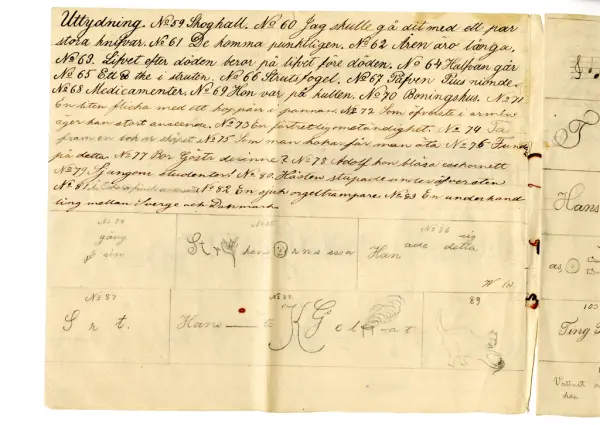 Uttydning. No 59 Skoghall. No 60 Jag skulle gå dit med ett par
stora knifvar. No 61 De komma punktligen. No 62 Åren äro långa.
No 63. Lifvet efter döden beror på lifvet före döden. No 64 Halfvän går
No 65 Ett & the i struten. No 66 Strutsfogel. No 67 Påfven Pius nionde.
No 68 Medicamenter. No 69 Hon var på hullen. No 70 Boningshus. No 71
En liten flicka med ett koppärr i pannan. No 72 Som öfverste i armén
äger han stort anseende. No 73 En förtretlig omständighet. No 74 Ta
fram en bok ur skåpet No 75 Som man kokar får man äta No 76
på detta. No 77 Bor Gösta derinne? No 78 Adolf kan blåsa cashornett
No 79. Sjungom studenter! No 80. Hästen stupade
No 81. No 82 En sjuk orgeltrampare. No 83 En underhand
ling mellan Sverge och Danmark.
No 84
gång
det sim
St r hans O rns essa
No 86 sig
Han ade detta
No 87
S r t.
No 88.
Hans — t K G e l at
89
Hans
as,
Ting
Vattnet
han